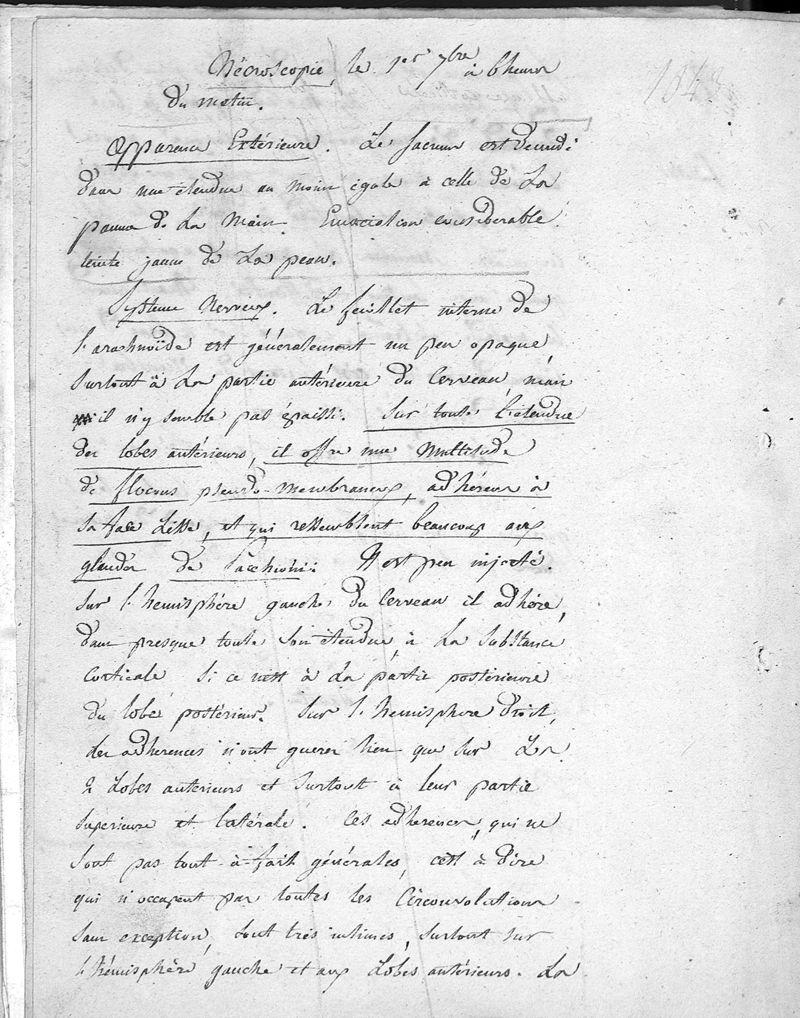 Nécroscopie, le 1er 7bre à 6 heures
du matin.
1843
Apparence Extérieure. Le sacrum est dénudé
dans une étendue au moins égale à celle de La
paume de La Main. Emaciation considérable.
teinte jaune de La peau.
Système Nerveux. Le feuillet interne de
l'arachnoïde est généralement un peu opaque
surtout à La partie antérieure du Cerveau, mais
il n'y semble pas épaissi. Sur toute l'étendue
des lobes antérieurs, il offre une Multitude
de flocons pseudo-membraneux, adhérens à
sa face Lisse, et qui ressemblent beaucoup aux
glandes de Pacchioni. Il est peu injecté.
Sur l'hemisphère gauche du Cerveau il adhère,
dans presque toute son étendue, à La substance
Corticale si ce n'est à La partie postérieure
du lobe postérieur. Sur l'hemisphere droit,
des adherences n'ont guères lieu que sur La
2 Lobes anterieurs et surtout à leur partie
superieure et latérale. Ces adherences, qui ne
sont pas tout-à-fait générales, c'est à dire
qui n'occupent pas toutes les Circonvolutions
sans exception, sont très intimes, surtout sur
l'hémisphère gauche et aux Lobes antérieurs. La